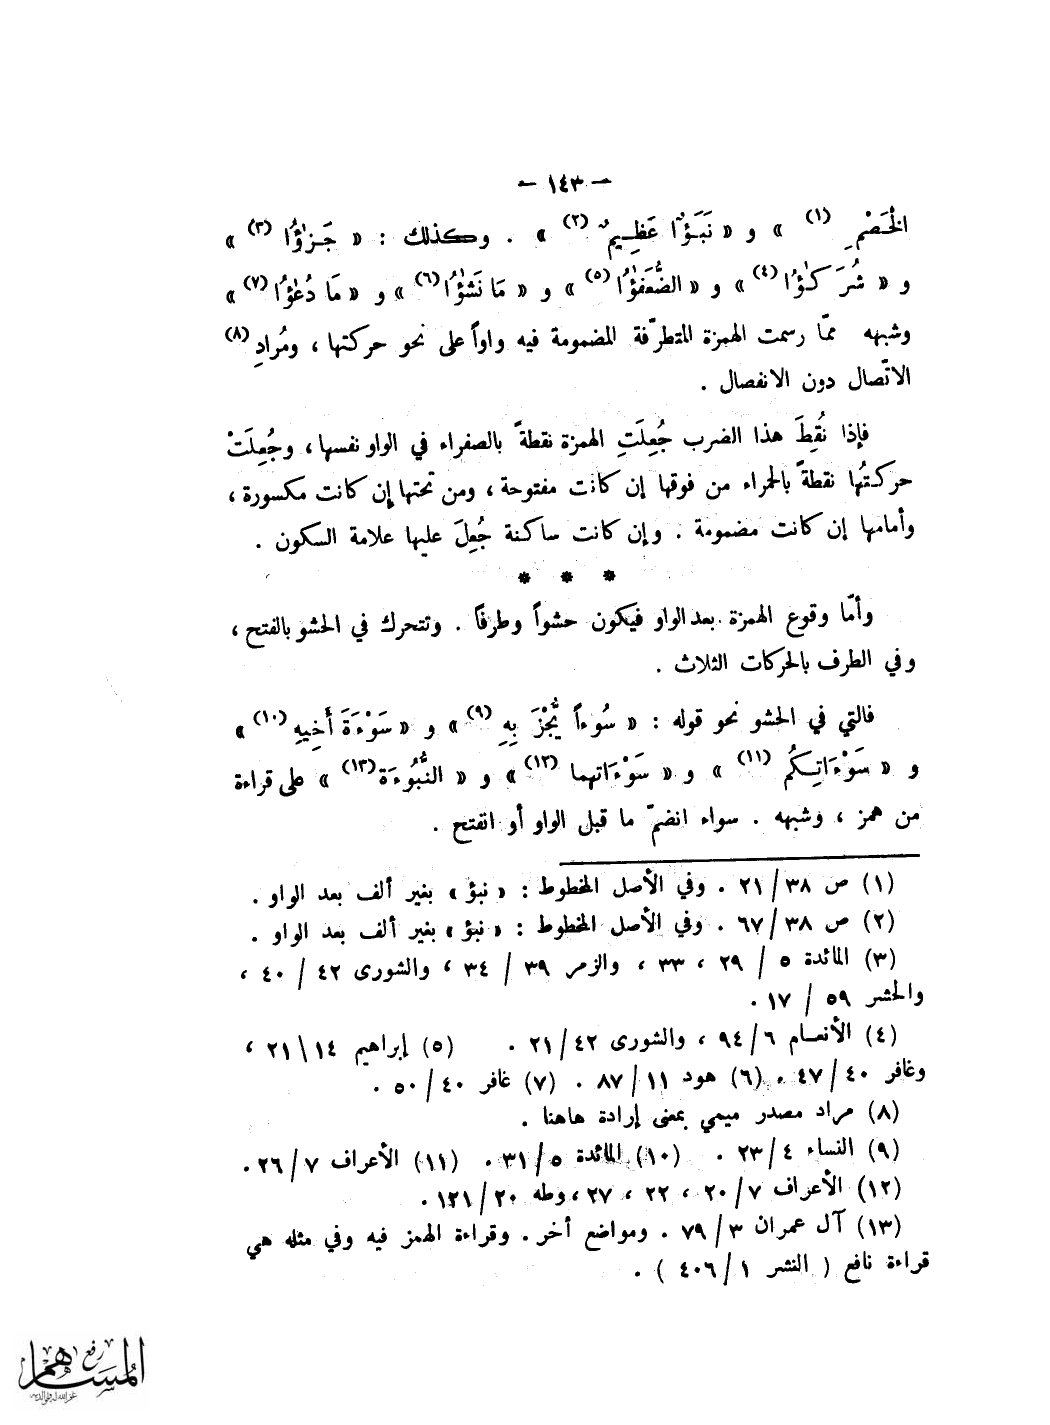 – ١٤٣ –
الْخَصْمِ (١) » و « نَبَؤٌا عَظِيمٌ (٢) » . وكذلك : « جَزٰؤُا (٣) »
و « شُرَكٰؤُا (٤) » و « الضُّعَفٰؤُا (٥) » و « مَا نَشٰؤُا (٦) » و « مَا دُعٰؤُا (٧) »
وشبهه ممّا رسمت الهمزة المتطرّفة المضمومة فيه واواً على نحو حركتها ، ومُرادِ (٨)
الاتّصال دون الانفصال .
فإذا نُقِطَ هذا الضرب جُعِلَتِ الهمزة نقطةً بالصفراء في الواو نفسها ، وجُعِلَتْ
حركتُها نقطةً بالحمراء من فوقها إن كانت مفتوحة ، ومن تحتها إن كانت مكسورة ،
وأمامها إن كانت مضمومة . وإن كانت ساكنة جُعِلَ عليها علامة السكون .
* * *
وأمّا وقوع الهمزة بعد الواو فيكون حشواً وطرفاً . وتتحرك في الحشو بالفتح ،
وفي الطرف بالحركات الثلاث .
فالتي في الحشو نحو قوله : « سُوءاً يُّجْزَ بِهِ (٩) » و « سَوْءَةَ أَخِيهِ (١٠) »
و « سَوْءَاتِكُم (١١) » و « سَوْءَاتهما (١٢) » و « النُّبُوءَة (١٣) » على قراءة
من همز ، وشبهه . سواء انضمّ ما قبل الواو أو انفتح .
(١) ص ٣٨/٢١ . وفي الأصل المخطوط : « نبؤ » بغير ألف بعد الواو .
(٢) ص ٣٨/٦٧ . وفي الأصل المخطوط : « نبؤ » بغير ألف بعد الواو .
(٣) المائدة ٥ / ٢٩ ، ٣٣ ، والزمر ٣٩ / ٣٤ ، والشورى ٤٢ / ٤٠ ،
والحشر ٥٩ / ١٧ .
(٤) الأنعام ٦/٩٤ ، والشورى ٤٢/٢١ . (٥) إبراهيم ١٤\٢١ ،
وغافر ٤٠/٤٧ . (٦) هود ١١/٨٧ . (٧) غافر ٤٠/٥٠ .
(٨) مراد مصدر ميمي بمعنى إرادة هاهنا .
(٩) النساء ٤/٢٣ . (١٠) المائدة ٥/٣١ . (١١) الأعراف ٧/٢٦ .
(١٢) الأعراف ٧/٢٠ ، ٢٢ ، ٢٧ ، وطه ٢٠/١٢١ .
(١٣) آل عمران ٣/٧٩ . ومواضع أخر . وقراءة الهمز فيه وفي مثله هي
قراءة نافع ( النشر ١/٤٠٦ ) .
رفع
المساهم